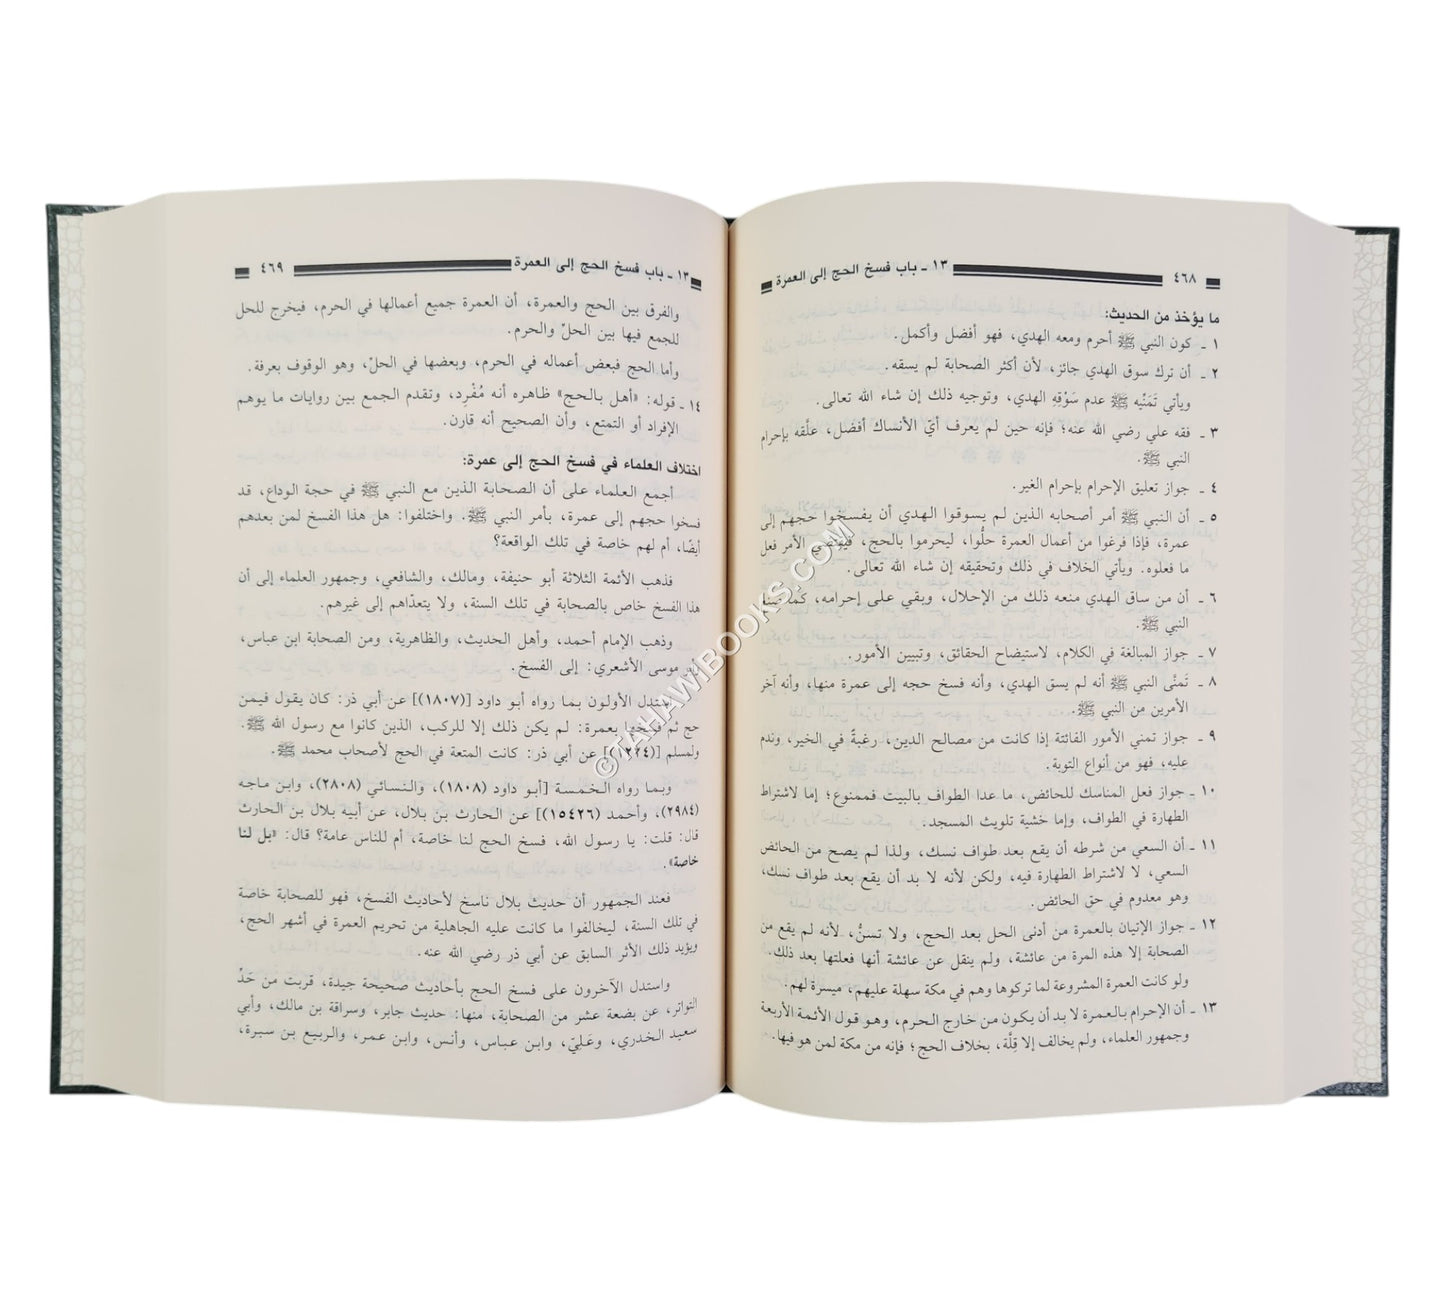 ٤٦٨
١٣ ـ باب فسخ الحج إلى العمرة
ما يؤخذ من الحديث:
١ ـ كون النبي ﷺ أحرم ومعه الهدي، فهو أفضل وأكمل.
٢ ـ أن ترك سوق الهدي جائز، لأن أكثر الصحابة لم يسقه.
ويأتي تَمَنِّيه ﷺ عدم سَوْقِهِ الهدي، وتوجيه ذلك إن شاء الله تعالى.
٣ ـ فقه علي رضي الله عنه؛ فإنه حين لم يَعرف أيّ الأنساك أفضل، علَّقه بإحرام
النبي ﷺ.
٤ ـ جواز تعليق الإحرام بإحرام الغير.
٥ ـ أن النبي ﷺ أمر أصحابه الذين لم يسوقوا الهدي أن يفسخوا حجهم إلى
عمرة، فإذا فرغوا من أعمال العمرة حلُّوا، ليحرموا بالحج، الأمر فعل
ما فعلوه. ويأتي الخلاف في ذلك وتحقيقه إن شاء الله تعالى.
٦ ـ أن من ساق الهدي منعه ذلك من الإحلال، وبقي على إحرامه،
النبي ﷺ.
٧ ـ جواز المبالغة في الكلام، لاستيضاح الحقائق، وتبيين الأمور.
٨ ـ تَمنَّى النبي ﷺ أنه لم يسق الهدي، وأنه فسخ حجه إلى عمرة منها، وأنه آخر
الأمرين من النبي ﷺ.
٩ ـ جواز تمني الأمور الفائتة إذا كانت من مصالح الدين، رغبةً في الخير، وندم
عليه، فهو من أنواع التوبة.
١٠ ـ جواز فعل المناسك للحائض، ما عدا الطواف بالبيت فممنوع؛ إما لاشتراط
الطهارة في الطواف، وإما خشية تلويث المسجد.
١١ ـ أن السعي من شرطه أن يقع بعد طواف نسك، ولذا لم يصح من الحائض
السعي، لا لاشتراط الطهارة فيه، ولكن لأنه لا بد أن يقع بعد طواف نسك،
وهو معدوم في حق الحائض.
١٢ ـ جواز الإتيان بالعمرة من أدنى الحل بعد الحج، ولا تسنُّ، لأنه لم يقع من
الصحابة إلا هذه المرة من عائشة، ولم ينقل عن عائشة أنها فعلتها بعد ذلك.
ولو كانت العمرة المشروعة لما تركوها وهم في مكة سهلة عليهم، ميسرة لهم.
١٣ ـ أن الإحرام بالعمرة لا بد أن يكون من خارج الحرم، وهو قول الأئمة الأربعة
وجمهور العلماء، ولم يخالف إلا قِلَّة، بخلاف الحج؛ فإنه من مكة لمن هو فيها.
١٣ ـ باب فسخ الحج إلى العمرة
٤٦٩
والفرق بين الحج والعمرة، أن العمرة جميع أعمالها في الحرم، فيخرج للحل
للجمع فيها بين الحلّ والحرم.
وأما الحج فبعض أعماله في الحرم، وبعضها في الحلّ، وهو الوقوف بعرفة.
١٤ ـ قوله: «أهل بالحج» ظاهره أنه مُفْرِد، وتقدم الجمع بين روايات ما يوهم
الإفراد أو التمتع، وأن الصحيح أنه قارن.
اختلاف العلماء في فسخ الحج إلى عمرة:
أجمع العلماء على أن الصحابة الذين مع النبي ﷺ في حجة الوداع، قد
فسخوا حجهم إلى عمرة، بأمر النبي ﷺ. واختلفوا: هل هذا الفسخ لمن بعدهم
أيضًا، أم لهم خاصة في تلك الواقعة؟
فذهب الأئمة الثلاثة أبو حنيفة، ومالك، والشافعي، وجمهور العلماء إلى أن
هذا الفسخ خاص بالصحابة في تلك السنة، ولا يتعدّاهم إلى غيرهم.
وذهب الإمام أحمد، وأهل الحديث، والظاهرية، ومن الصحابة ابن عباس،
موسى الأشعري: إلى الفسخ.
استدل الأولون بما رواه أبو داود [(١٨٠٧)] عن أبي ذر: كان يقول فيمن
حج ثم فسخها بعمرة: لم يكن ذلك إلا للركب، الذين كانوا مع رسول الله ﷺ.
ولمسلم عن أبي ذر: كانت المتعة في الحج لأصحاب محمد ﷺ.
وبما رواه الخمسة [أبو داود (١٨٠٨)، والنسائي (٢٨٠٨)، وابن ماجه
(٢٩٨٤)، وأحمد (١٥٤٢٦)] عن الحارث بن بلال، عن أبيه بلال بن الحارث
قال: قلت: يا رسول الله، فسخ الحج لنا خاصة، أم للناس عامة؟ قال: «بل لنا
خاصة».
فعند الجمهور أن حديث بلال ناسخ لأحاديث الفسخ، فهو للصحابة خاصة
في تلك السنة، ليخالفوا ما كانت عليه الجاهلية من تحريم العمرة في أشهر الحج،
ويؤيد ذلك الأثر السابق عن أبي ذر رضي الله عنه.
واستدل الآخرون على فسخ الحج بأحاديث صحيحة جيدة، قربت من حَدِّ
التواتر، عن بضعة عشر من الصحابة، منها: حديث جابر، وسراقة بن مالك، وأبي
سعيد الخدري، وعَلِيّ، وابن عباس، وأنس، وابن عمر، والربيع بن سبرة،
©TAHAWIBOOKS.COM